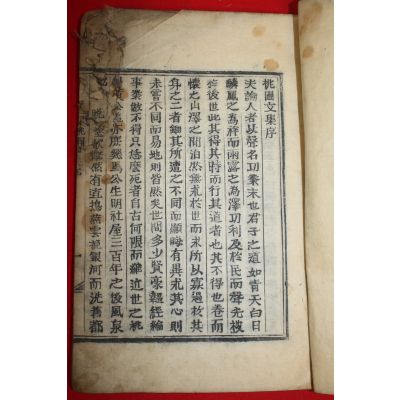 桃圃文集序
夫論人者以聲名功業末也君子之道如青天白日
麟鳳之為祥而雨露之為澤功利及於民而聲先被
於後世此其得其時而行其道者也其不得也卷而
懷之山澤之間泊然無求於世而求所以寡過於其
身之二者雖其所遭之不同而顯晦有異尤其心則
未嘗不同而易地則皆然矣世間多少賢豪韞經綸
事業做不得只恁麼死者自古何限而難近世之桃
公焉亦庶幾焉公生明社屋三百年之後風泉
晩 有直擣燕雲挽銀河而洗舊都